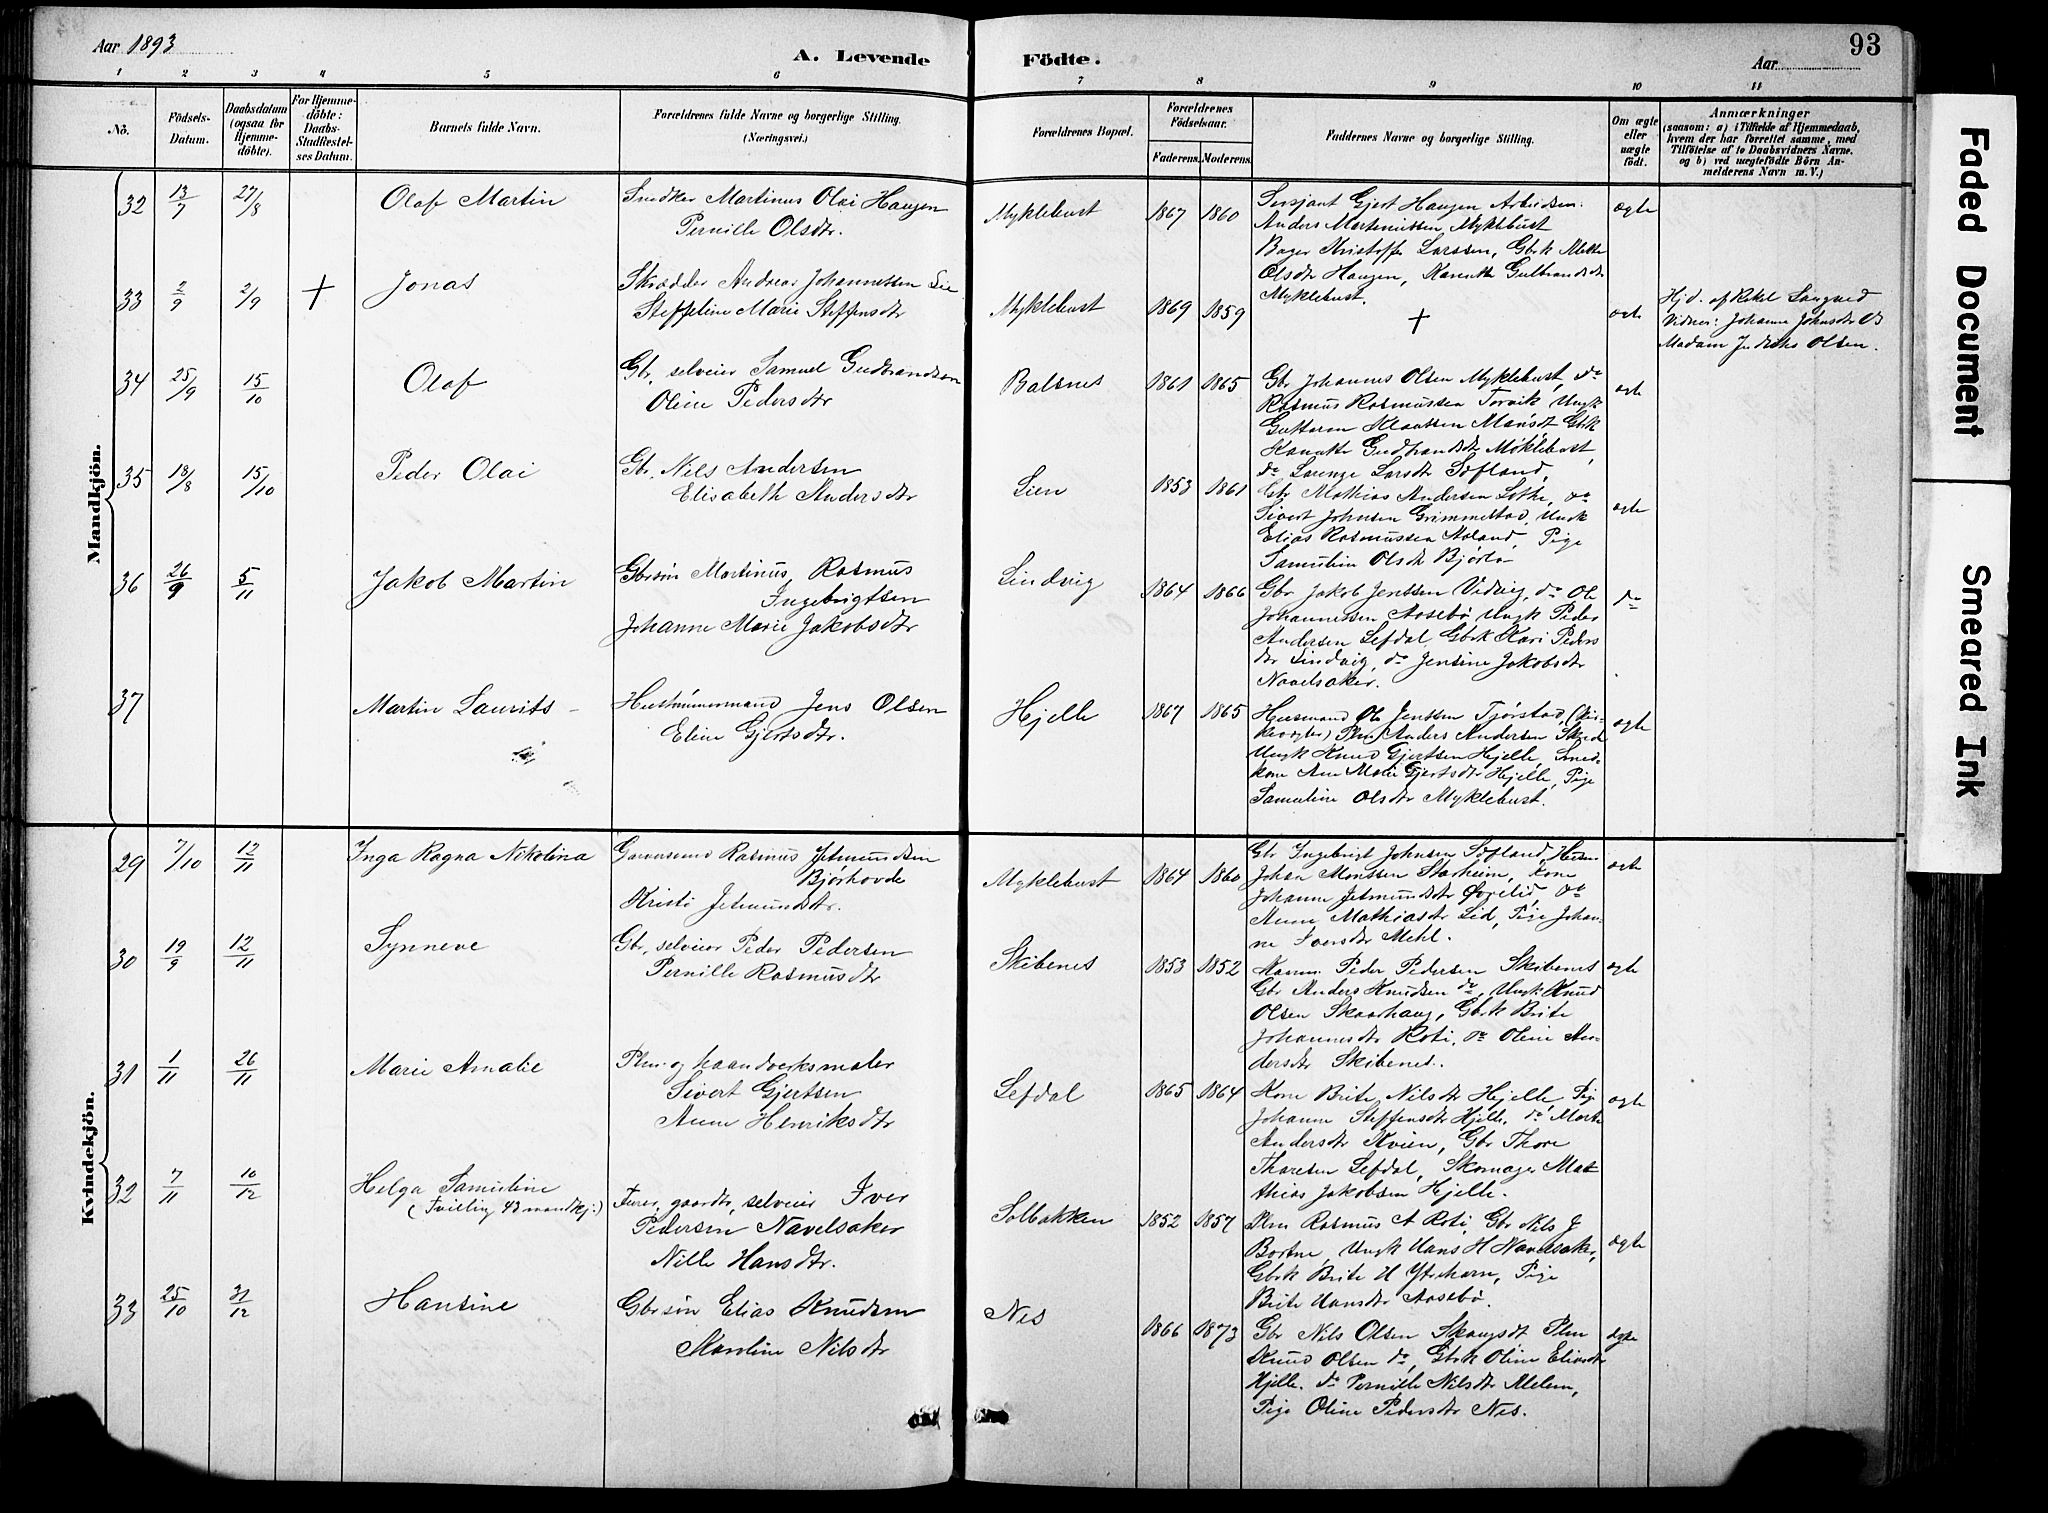 Aar 1893
A. Levende Födte.
Aar
93
1 2 3 4 5 6 7 8 9 10 11
No.
Födsels-Datum.
Daabsdatum (ogsaa for Hjemme-döbte).
For Hjemme-döbte: Daabs-Stadfæstel-ses Datum.
Barnets fulde Navn.
Forældrenes fulde Navne og borgerlige Stilling. (Næringsvei.)
Forældrenes Bopæl.
Forældrenes Födselsaar.
Faderens. Moderens.
Faddernes Navne og borgerlige Stilling.
Om ægte eller uægte födt.
Anmærkninger
(saasom: a) i Tilfælde af Hjemmedaab,
hvem der har forrettet samme, med
Tilföielse af to Daabsvidners Navne.
og b) ved uægtefödte Börn An-
melderens Navn m. V.)
Mandkjön.
32 13/7 27/8 Olaf Martin
Snedker Martinus Olai Haugen
Pernille Olsdtr.
Myklebust 1867 1860
Sersjant Gjert Haugen Arbeidsm.
Anders Martinussen Myklebust
Bager Kristoffer Larssen, Gbrk Mette
Olsdtr Haugen, Gulbrandsdtr
Myklebust.
ægte
33 2/9 2/9 + Jonas
Skrædder Andreas Johannessen Lie
Steffeline Marie Steffensdtr
Myklebust 1869 1859
+
ægte
Hjd. af Rakel
Vidner: Johanne Johnsdtr
Madam Olsen.
34 25/9 15/10 Olaf
Gbr, selveier Samuel Gudbrandsen
Oline Pedersdtr
Balsnes 1861 1865
Gbr Johannes Olsen Myklebust, do
Rasmus Rasmussen Torvik Ungk
Guttorm Klaussen Gbrk
Gudbrandsdtr Myklebust,
do Larsdtr
ægte
35 18/8 15/10 Peder Olai
Gbr. Nils Andersen
Elisabeth Andersdtr
Lien 1853 1861
Gbr Mathias Andersen Lothe, do
Sivert Johnsen Grimmestad, Ungk
Elias Rasmussen Pige
Samuline Olsdtr Bjørlo
ægte
36 26/9 5/11 Jakob Martin
Gbrsøn Martinus Rasmus
Ingebrigtsen
Johanne Marie Jakobsdtr
Lindvig 1864 1866
Gbr Jakob Jenssen Vedvig, do Ole
Johannessen Aasebø Ungk Peder
Andersen Lefdal, Gbrk Kari Peders
dtr Lindvig, do Jensine Jakobsdtr
Navelsaker.
do
37 Martin Laurits -
Hustømmermand Jens Olsen
Eline Gjertsdtr.
Hjelle 1867 1865
Husmand Ole Jenssen Tjørstad, (Kir-
kevogter) Plm Anders Andersen
Ungk Knud Gjertsen Hjelle, Smed-
kone Ane Marie Gjertsdtr Hjelle, Pige
Samuline Olsdtr Myklebust.
ægte
Kvindekjön.
29 7/10 12/11 Inga Ragna Nikolina
Rasmus Jetmundsen
Bjørhovde
Kristi Jetmundsdtr.
Myklebust 1864 1860
Gbr Ingebrigt Johnsen
Johan Monssen Starheim, kone
Johanne Jetmundsdtr do
Anne Mathiasdtr Lid, Pige Johan-
ne Iversdtr Mehl.
ægte
30 19/9 12/11 Synneve
Gbr, selveier Peder Pedersen
Pernille Rasmusdtr
Skibenes 1853 1852
Peder Pedersen Skibenes
Gbr Anders Knudsen do, Ungk Knud
Olsen Skaarhaug, Gbrk Brite
Johannesdtr Roti, do Oline An-
dersdtr Skibenes.
ægte
31 1/11 26/11 Marie Amalie
Plm- og haandverksmaler
Sivert Gjertsen
Anne Henriksdtr
Lefdal 1865 1864
Kone Brite Nilsdtr Hjelle, Pige
Johanne Steffensdtr Hjelle, do Marte
Andersdtr Kvien, Gbr Thore
Thoresen Lefdal, Skomager Mat
thias Jakobsen Hjelle.
ægte
32 7/11 10/12 Helga Samuline
(Tvilling 43 mandkj:)
gaardbr, selveier Iver
Pedersen Navelsaker
Nille Hansdtr.
Solbakken 1852 1857
Plm Rasmus A Roti, Gbr Nils J
Bortne, Ungk Hans H Navelsaker,
Gbrk Brite H Ytrehorn, Pige
Brite Hansdtr Aasebø.
ægte
33 25/10 31/12 Hansine
Gbrsøn Elias Knudsen
Karoline Nilsdtr
Nes 1866 1873
Gbr Nils Olsen Plm
Knud Olsen do, Gbrk Oline Eliasdtr
Hjelle, do Pernille Nilsdtr Melem,
Pige Oline Pedersdtr Nes.
ægte
Faded Document
Smeared Ink